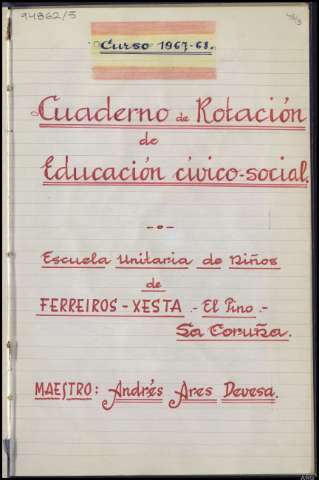 94862/5
Curso 1967-68.
Cuaderno de Rotación
de
Educación cívico-social.
Escuela Unitaria de Niños
de
FERREIROS - XESTA .- El Pino .-
La Coruña.
MAESTRO: Andrés Ares Devesa.